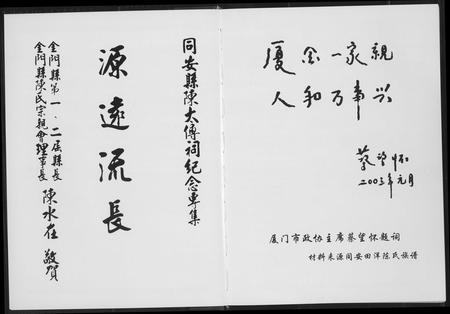 厦金一家親
人和万事兴
蔡望怀
二〇〇三年元月
厦门市政协主席蔡望怀题词
材料来源同安田洋陈氏族谱
同安縣陳太傅祠紀念專集
源遠流長
金門縣第一、二屆縣長
金門縣陳氏宗親會理事長
陳水在 敬賀